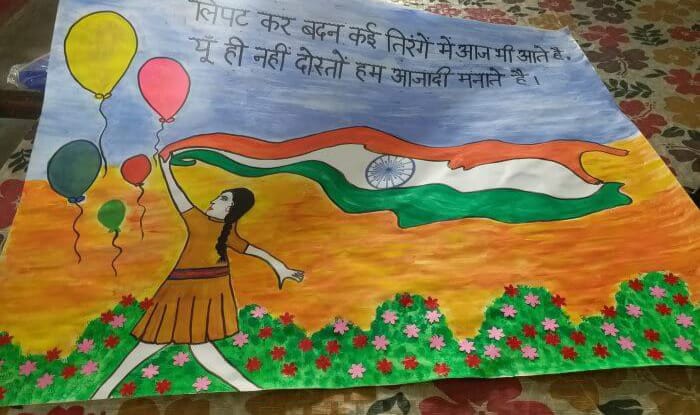 लिपट कर बदन कई तिरंगे में आज भी आते है,
यूँ ही नहीं दोस्तों हम आजादी मनाते है।